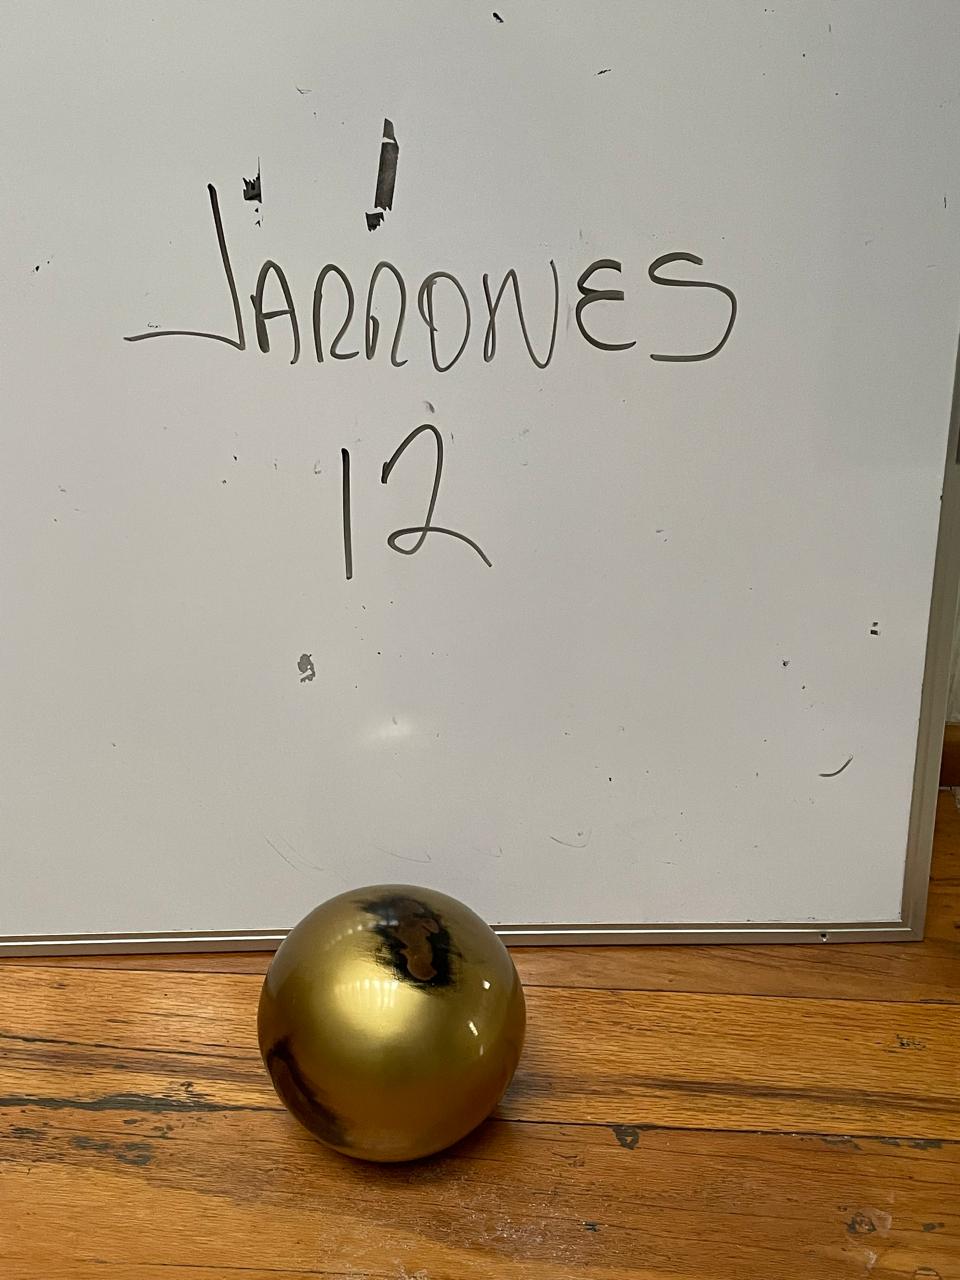 JARRONES
12